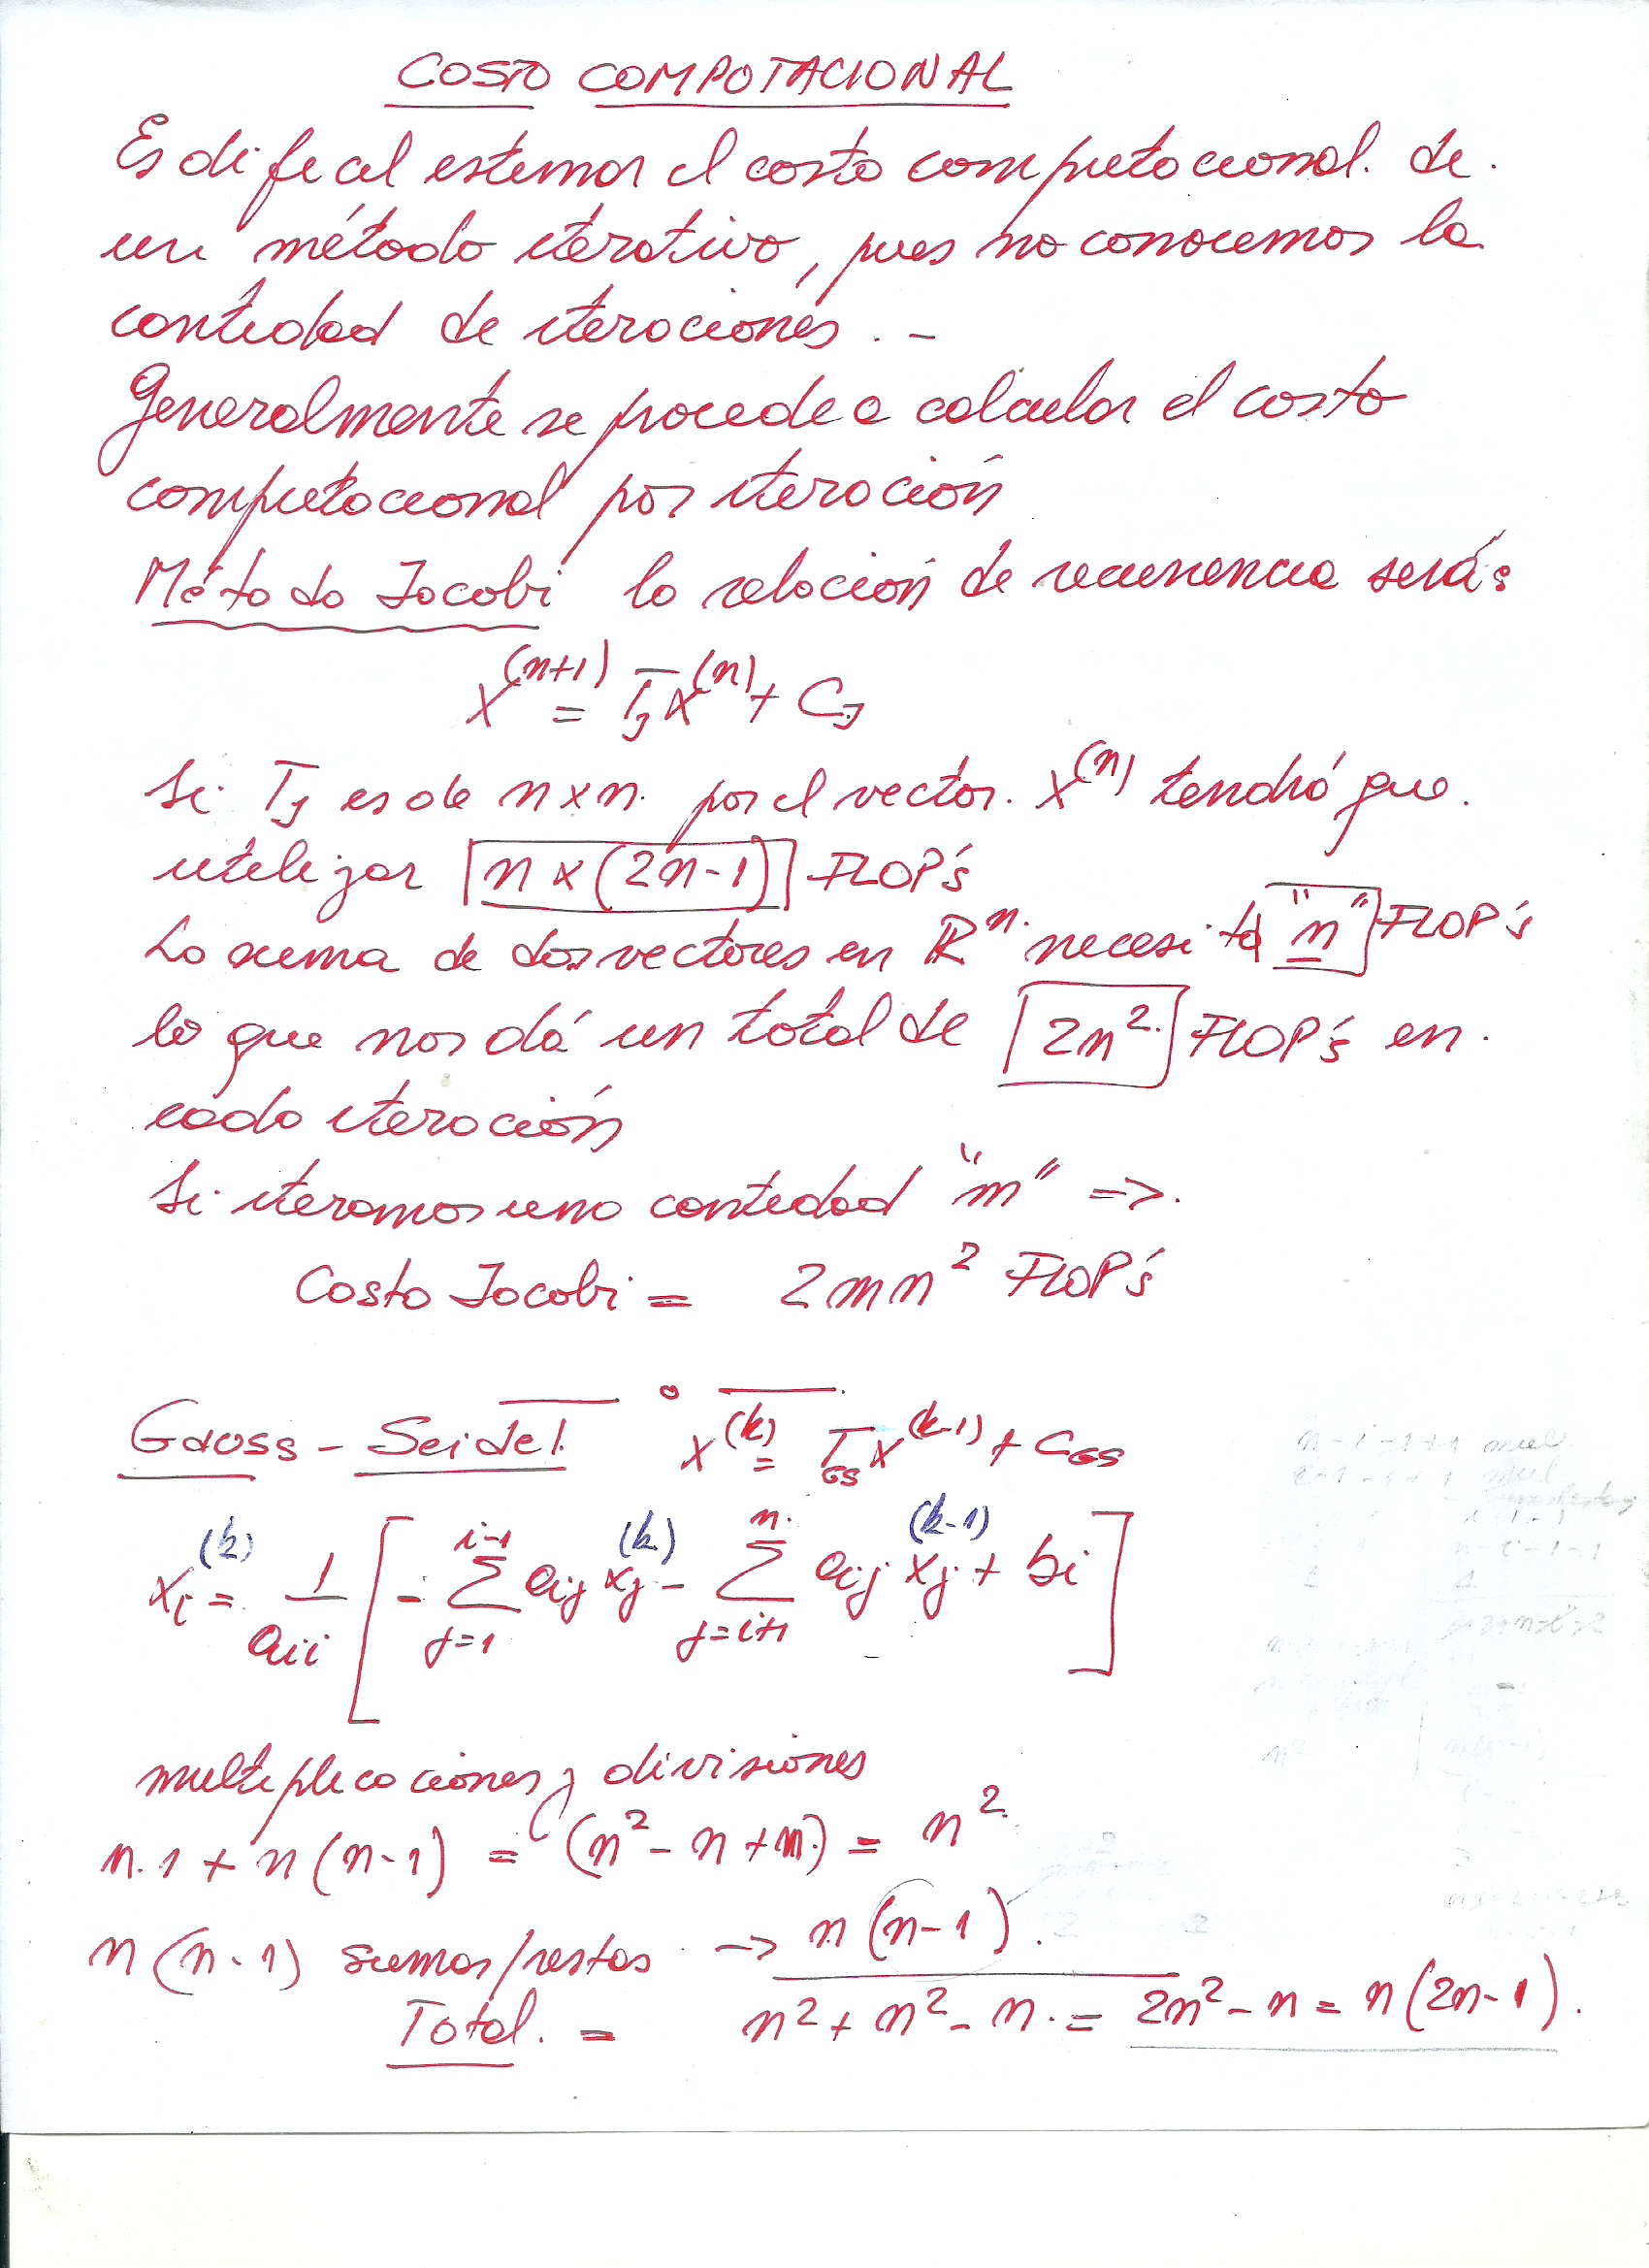 COSTO COMPUTACIONAL
Es difícil estimar el costo computacional. de.
un método iterativo, pues no conocemos la
cantidad de iteraciones. -
Generalmente se procede a calcular el costo
computacional por iteración
Método Jacobi la relación de recurrencia será:
X^(n+1) = T_J X^(n) + C_J
Si T_J es de n x n. por el vector. X^(n) tendrá que.
utilizar n x (2n-1) FLOP's
La suma de dos vectores en R^n. necesita "n" FLOP's
lo que nos dá un total de 2n². FLOP's en.
cada iteración
Si iteramos una cantidad "m" =>.
Costo Jacobi = 2mn² FLOP's
Gauss - Seidel. X^(k) = T_GS X^(k-1) + C_GS
x_i^(k) = 1/a_ii [ - Σ_{j=1}^{i-1} a_ij x_j^(k) - Σ_{j=i+1}^{n} a_ij x_j^(k-1) + b_i ]
multiplicaciones y divisiones
n.1 + n(n-1) = (n² - n + n) = n².
n(n-1) sumas/restas -> n(n-1).
Total. = n² + n² - n. = 2n² - n = n(2n-1).